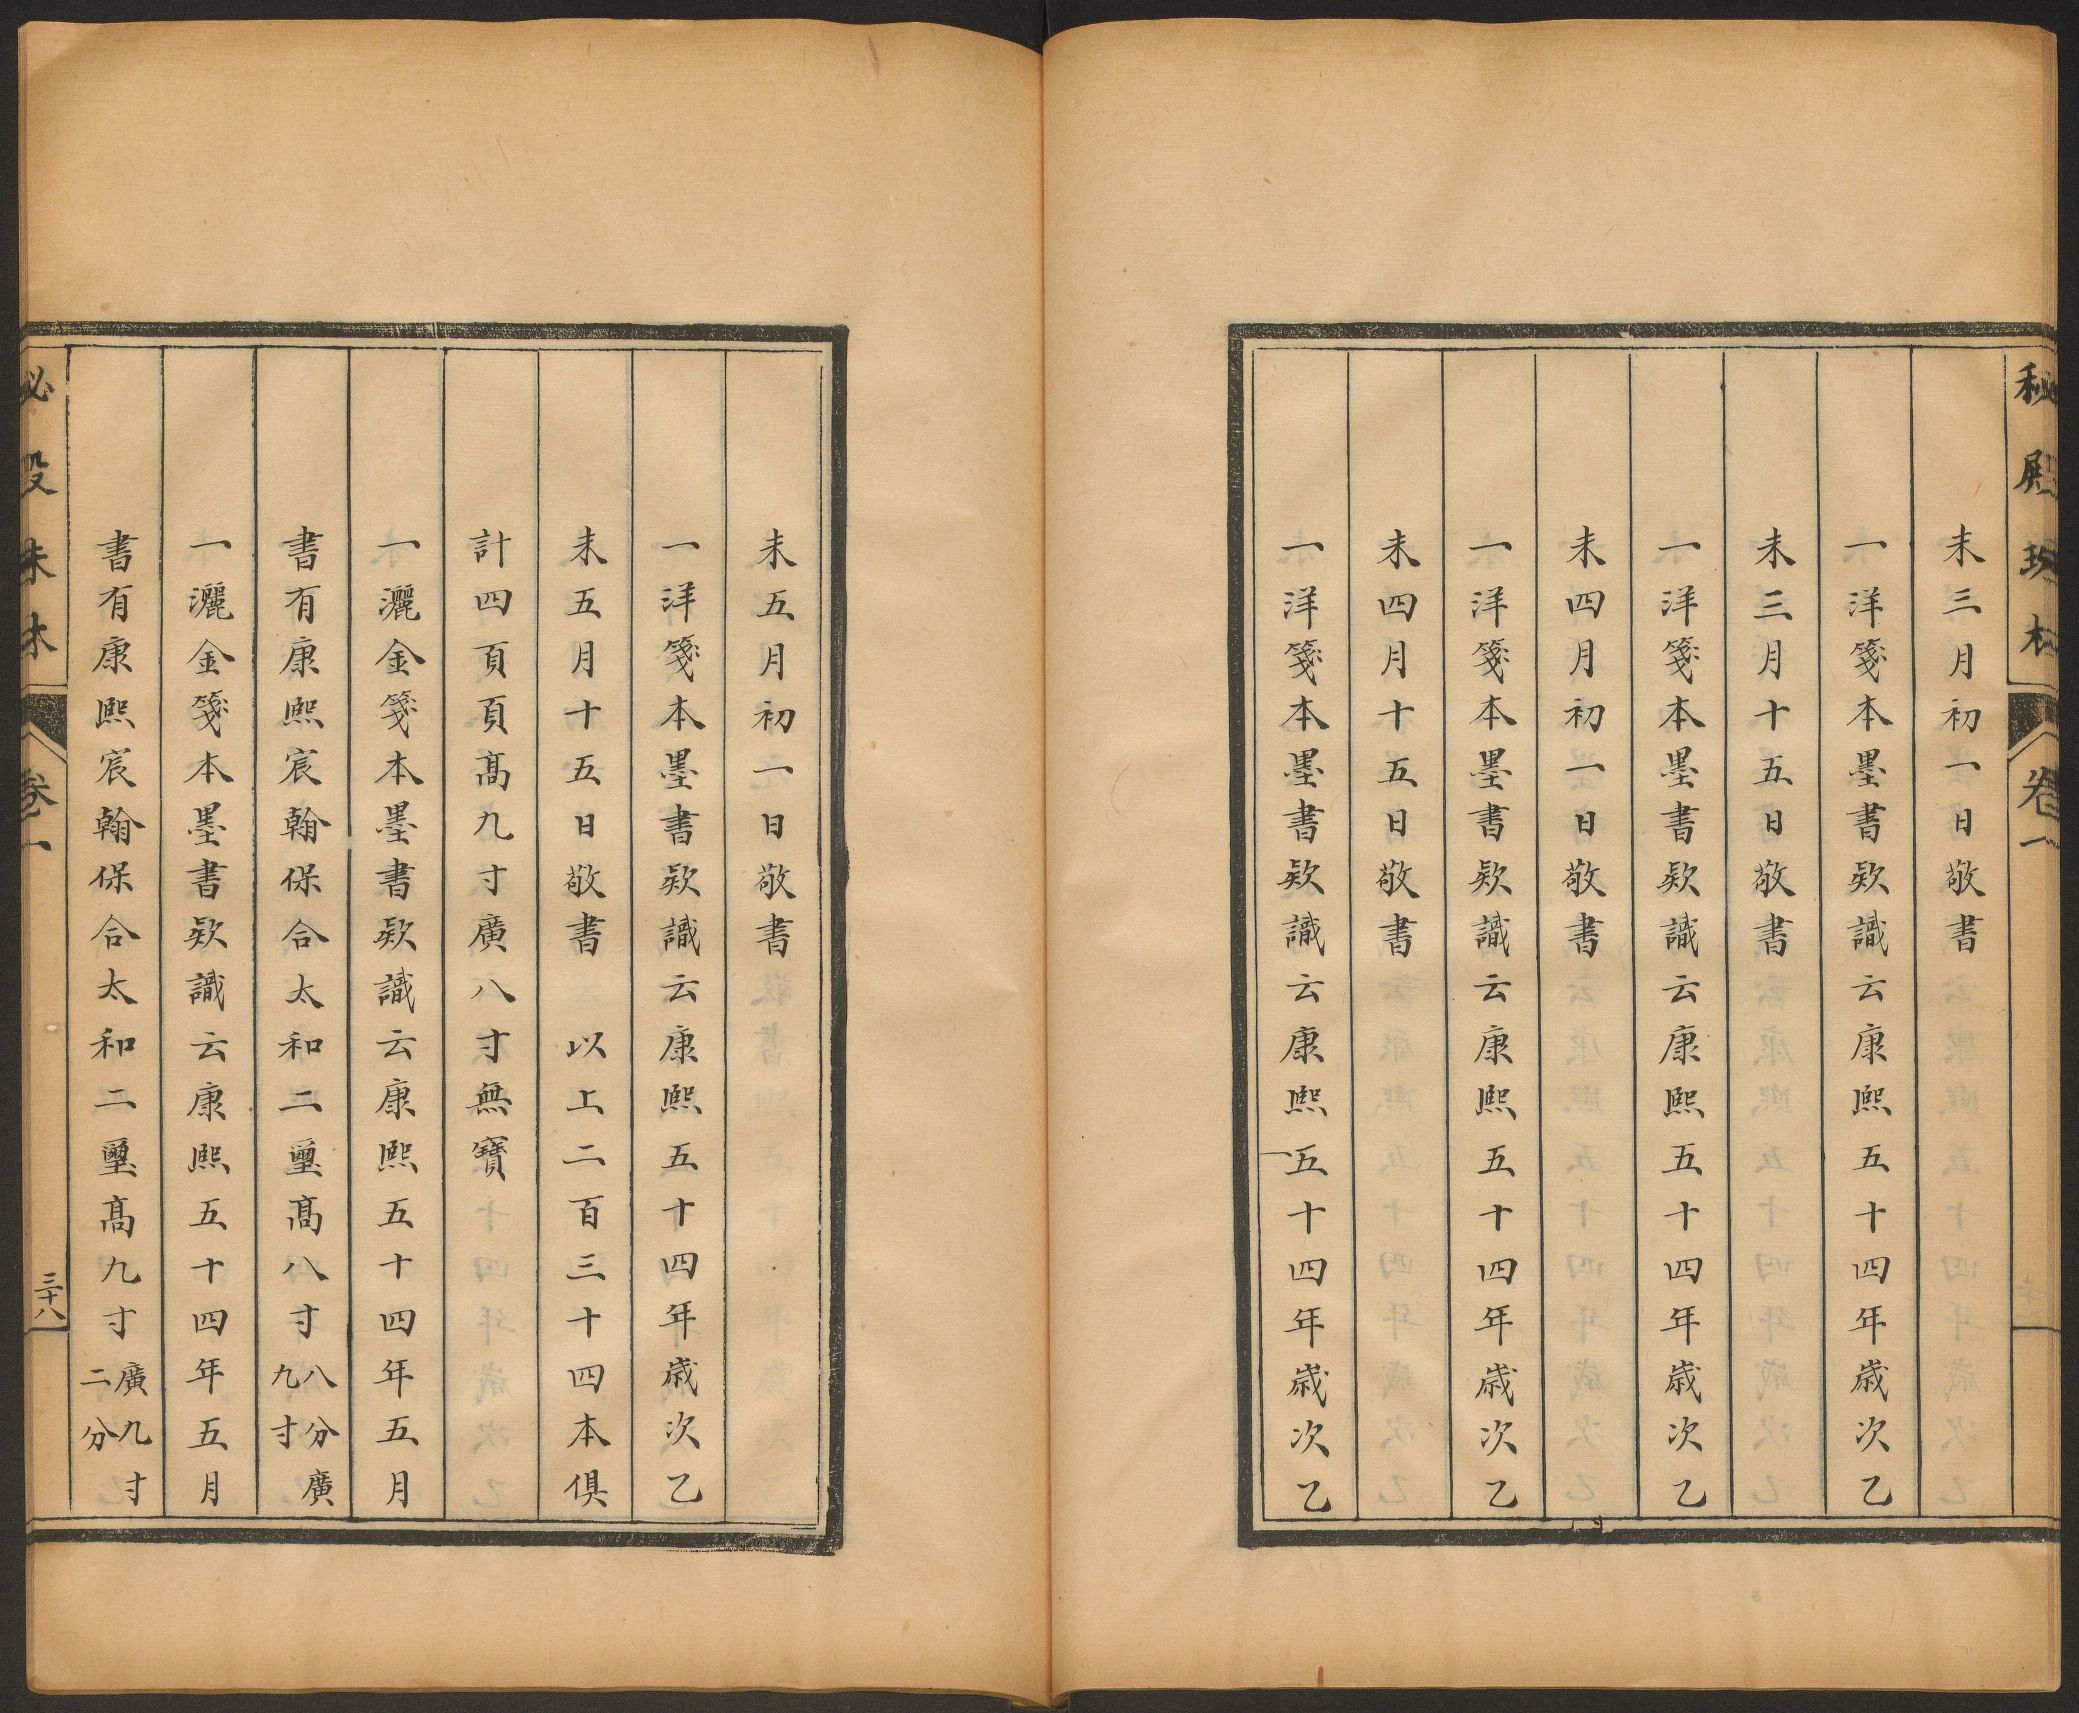 秘殿珠林
卷一
未三月初一日敬書
一洋箋本墨書欵識云康熙五十四年歲次乙
未三月十五日敬書
一洋箋本墨書欵識云康熙五十四年歲次乙
未四月初一日敬書
一洋箋本墨書欵識云康熙五十四年歲次乙
未四月十五日敬書
一洋箋本墨書欵識云康熙五十四年歲次乙
未五月初一日敬書
一洋箋本墨書欵識云康熙五十四年歲次乙
未五月十五日敬書 以上二百三十四本俱
計四頁頁髙九寸廣八寸無寶
一灑金箋本墨書欵識云康熙五十四年五月
書有康熙宸翰保合太和二璽髙八寸八分廣
九寸
一灑金箋本墨書欵識云康熙五十四年五月
書有康熙宸翰保合太和二璽髙九寸廣九寸
二分
秘殿珠林
卷一
三十八